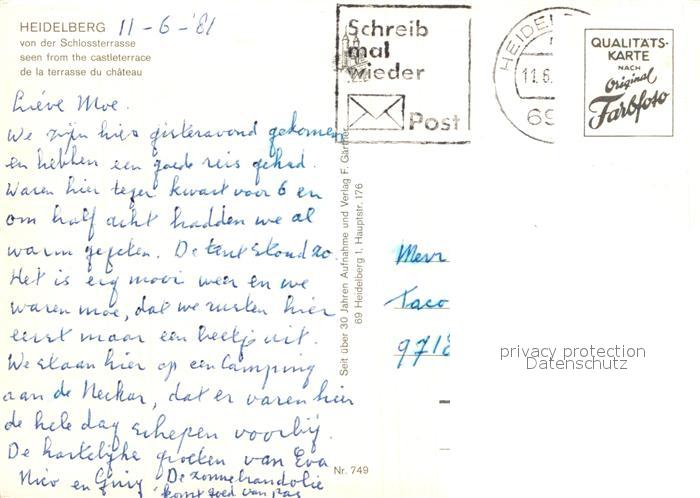 HEIDELBERG 11-6-'81
von der Schlossterrasse
seen from the castleterrace
de la terrasse du château
Liéve Moe.
We zijn hier gisteravond gekomen
en hebben een goede reis gehad.
Waren hier tegen kwart voor 6 en
om half acht hadden we al
warm gegeten. De tent stond zo.
Het is erg mooi weer en we
waren moe, dat we rusten hier
eerst maar een beetje uit.
We staan hier op een Camping
aan de Neckar, dat er varen hier
de hele dag schepen voorbij.
De hartelijke groeten van Eva
Nico en
De zonnebrandolie
komt goed van pas
Schreib
mal
wieder
Post
HEIDEL
11.6.
69
QUALITÄTS-
KARTE
NACH
Original
Farbfoto
Seit über 30 Jahren Aufnahme und Verlag F. Gärtner
69 Heidelberg 1, Hauptstr. 176
Mevr
Taco
9718
privacy protection
Datenschutz
Nr. 749